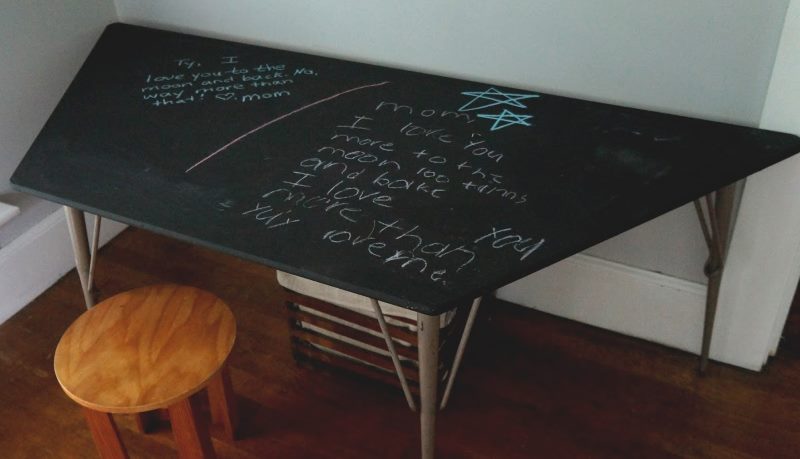 Ty, I
love you to the
moon and back. No,
way more than
that! ♡, mom
mom,
I love you
more to the
moon 100 timns
and bake
I love
more than you
love me.